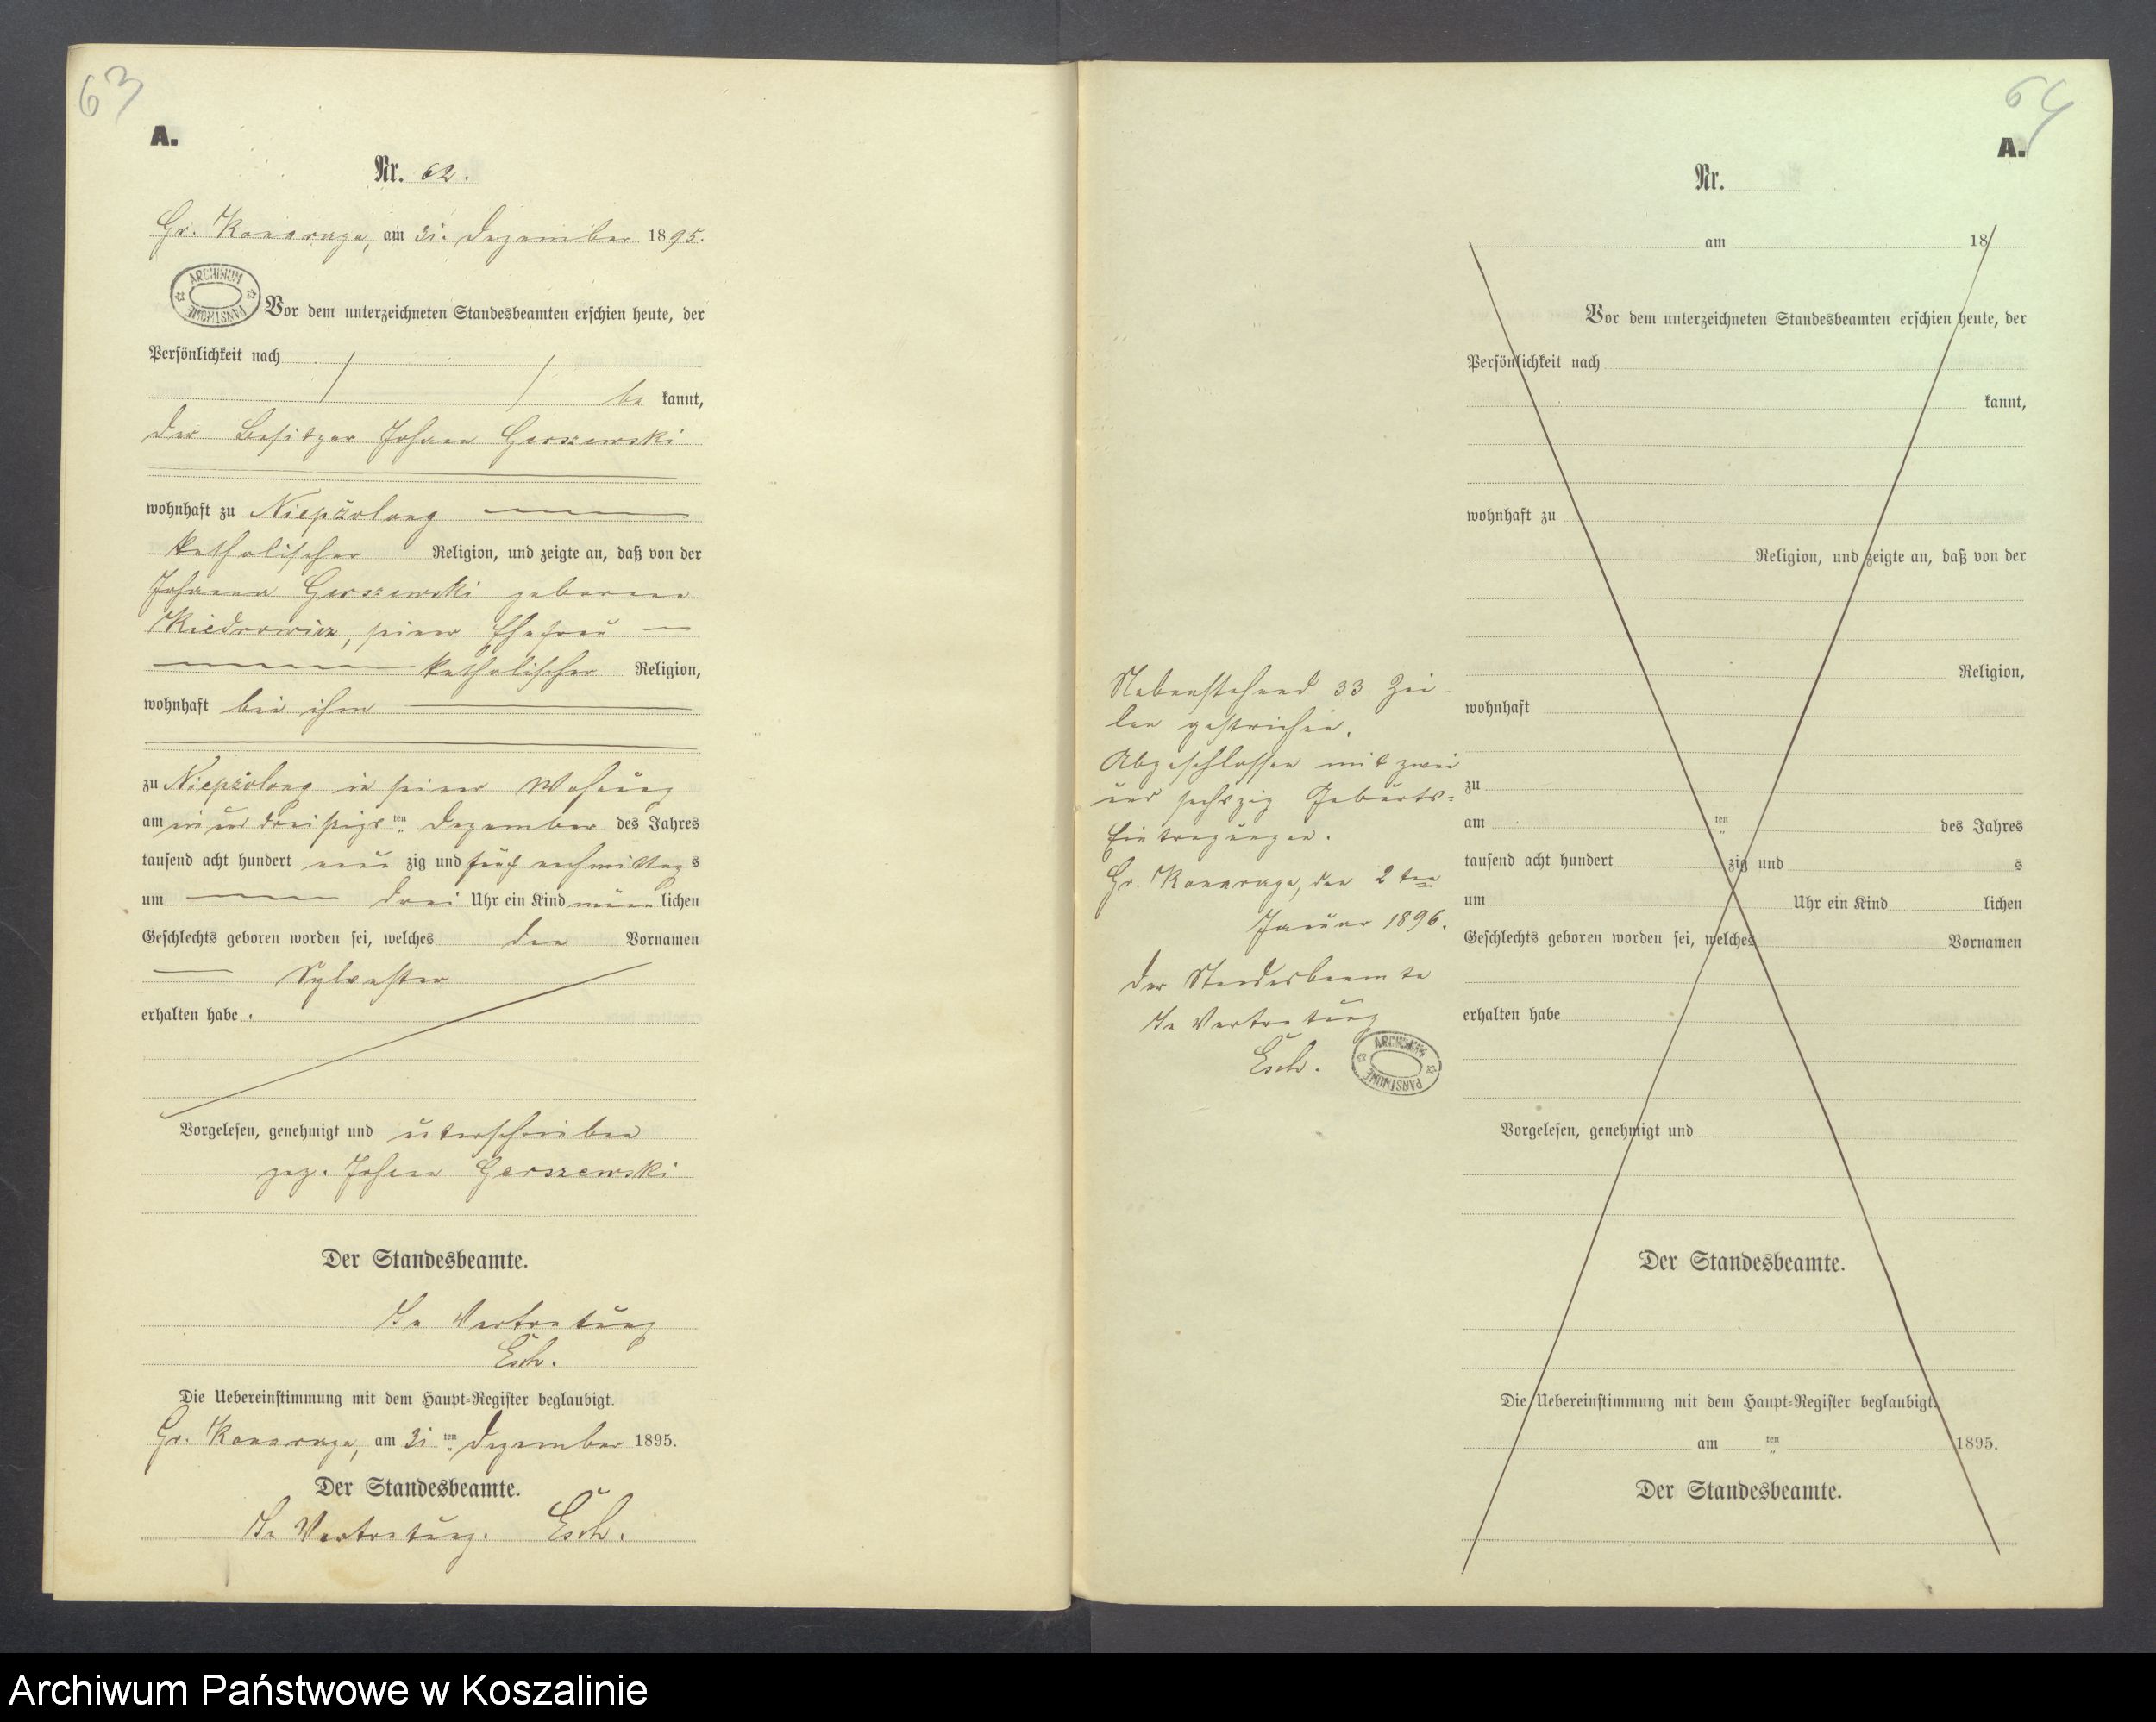 63
A.
Nr. 62.
Gr. Konarzyn, am 31. Dezember 1895.
ARCHIWUM PAŃSTWOWE
Vor dem unterzeichneten Standesbeamten erschien heute, der
Persönlichkeit nach
be kannt,
der Besitzer Johann Gerszewski
wohnhaft zu Niepszolong
katholischer Religion, und zeigte an, daß von der
Johanna Gerszewski geborene
Kiedrowicz, seiner Ehefrau
katholischer Religion,
wohnhaft bei ihm
zu Niepszolong in seiner Wohnung
am einunddreißigsten ten Dezember des Jahres
tausend acht hundert neun zig und fünf nachmittag s
um drei Uhr ein Kind männ lichen
Geschlechts geboren worden sei, welches den Vornamen
Sylvester
erhalten habe.
Vorgelesen, genehmigt und unterschrieben
gez. Johann Gerszewski
Der Standesbeamte.
In Vertretung
Esch.
Die Uebereinstimmung mit dem Haupt-Register beglaubigt.
Gr. Konarzyn, am 31 ten Dezember 1895.
Der Standesbeamte.
In Vertretung. Esch.
64
A.
Nr.
am 18
Vor dem unterzeichneten Standesbeamten erschien heute, der
Persönlichkeit nach
kannt,
wohnhaft zu
Religion, und zeigte an, daß von der
Religion,
wohnhaft
zu
am ten des Jahres
tausend acht hundert zig und s
um Uhr ein Kind lichen
Geschlechts geboren worden sei, welches Vornamen
erhalten habe
Vorgelesen, genehmigt und
Der Standesbeamte.
Die Uebereinstimmung mit dem Haupt-Register beglaubigt.
am ten 1895.
Der Standesbeamte.
Nebenstehend 33 Zei-
len gestrichen.
Abgeschlossen mit zwei
und sechszig Geburts-
Eintragungen.
Gr. Konarzyn, den 2 ten
Januar 1896.
Der Standesbeamte
In Vertretung
Esch.
ARCHIWUM PAŃSTWOWE
Archiwum Państwowe w Koszalinie